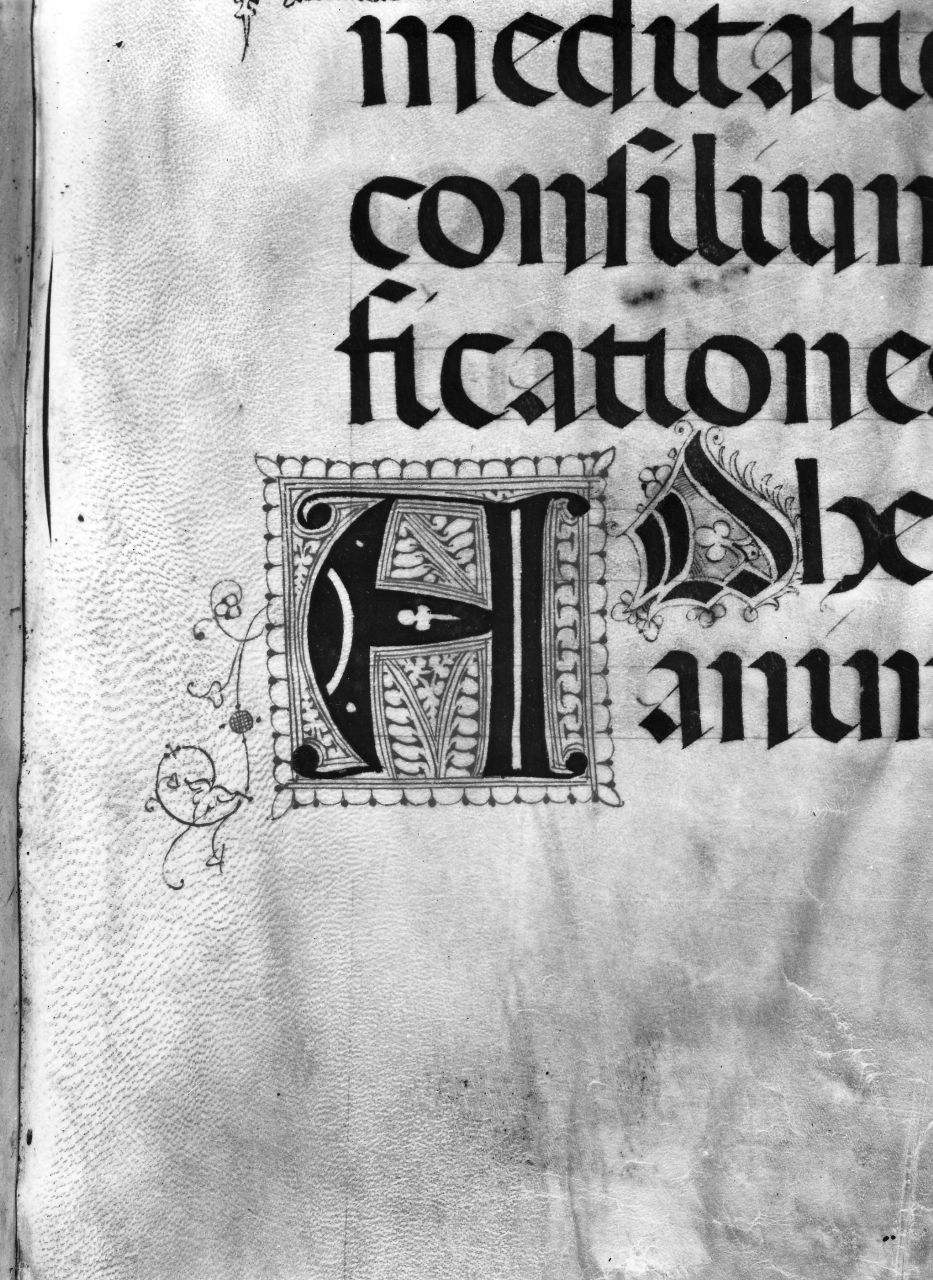 meditatio
consilium
ficationes
ADhe
anim